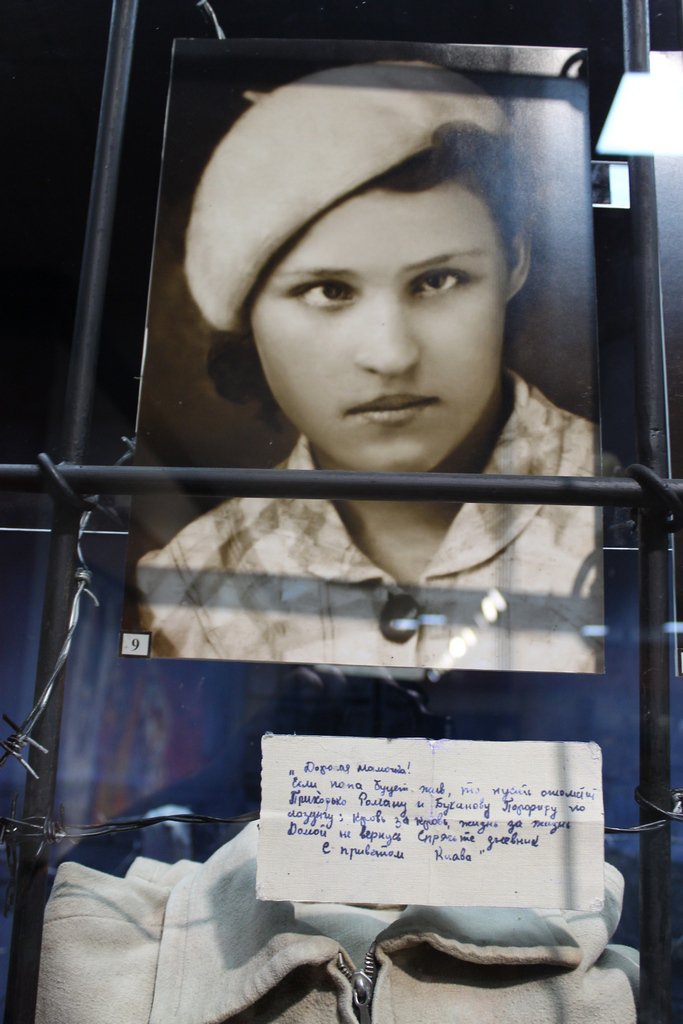 9
„Дорогая мамочка!
Если папа будет жив, то пусть отомстит
Приходько Роману и Буканову Порфиру по
лозунгу: кровь за кровь, жизнь за жизнь
Домой не вернусь Спрячьте дневник
С приветом Клава"